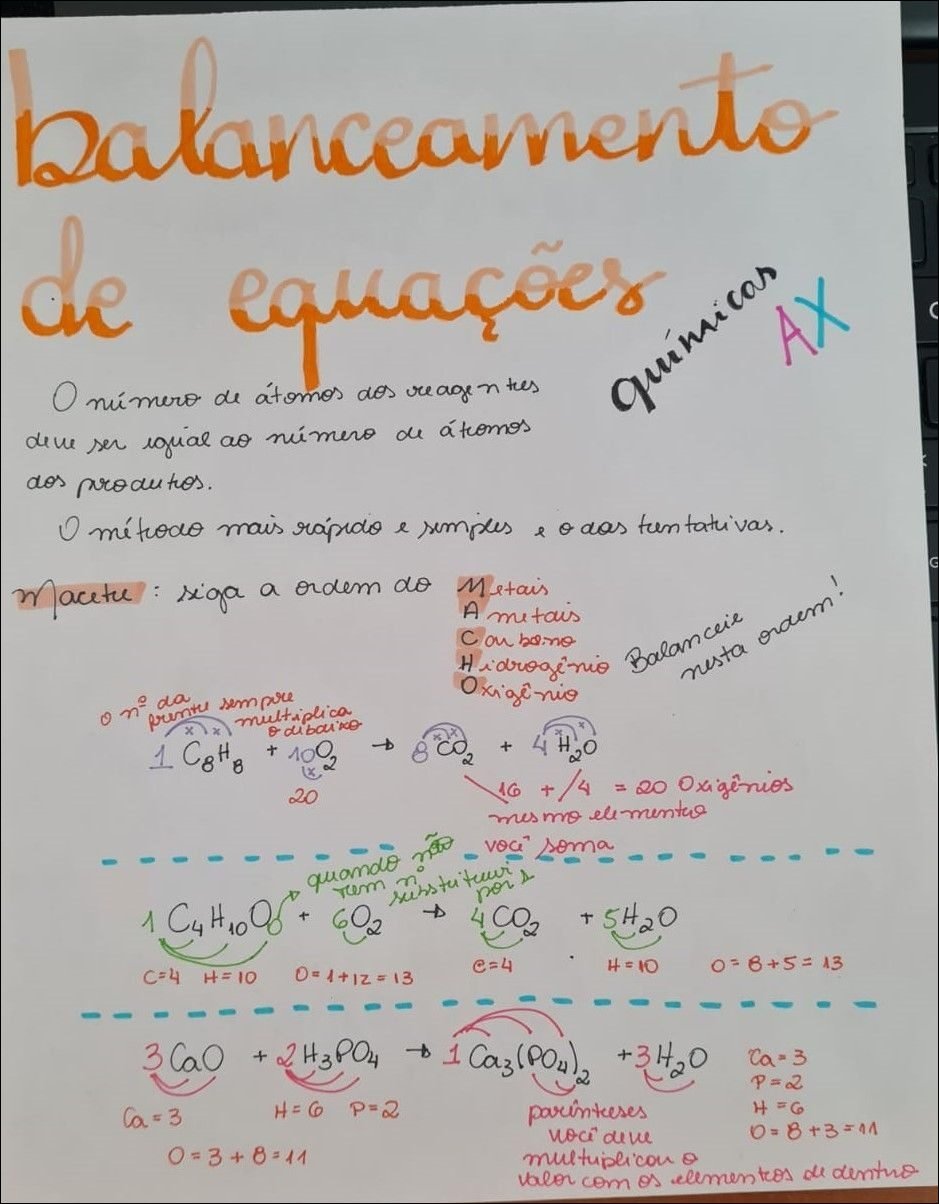 balanceamento
de equações
químicas
AX
O número de átomos dos reagentes
deve ser igual ao número de átomos
dos produtos.
O método mais rápido e simples é o das tentativas.
Macete: siga a ordem do Metais
Ametais
Carbono
Hidrogênio
Oxigênio
Balanceie
nesta ordem!
o nº da
frente sempre
multiplica
o debaixo
1 C₈H₈ + 10O₂ → 8CO₂ + 4H₂O
20
16 + 4 = 20 Oxigênios
mesmo elemento
você soma
quando não
tem nº
substitui
por 1
1 C₄H₁₀O + 6O₂ → 4CO₂ + 5H₂O
C=4 H=10 O=1+12=13 C=4 H=10 O=8+5=13
3CaO + 2H₃PO₄ → 1Ca₃(PO₄)₂ + 3H₂O
Ca=3 H=6 P=2
O=3+8=11
parênteses
você deve
multiplicar o
valor com os elementos de dentro
Ca=3
P=2
H=6
O=8+3=11